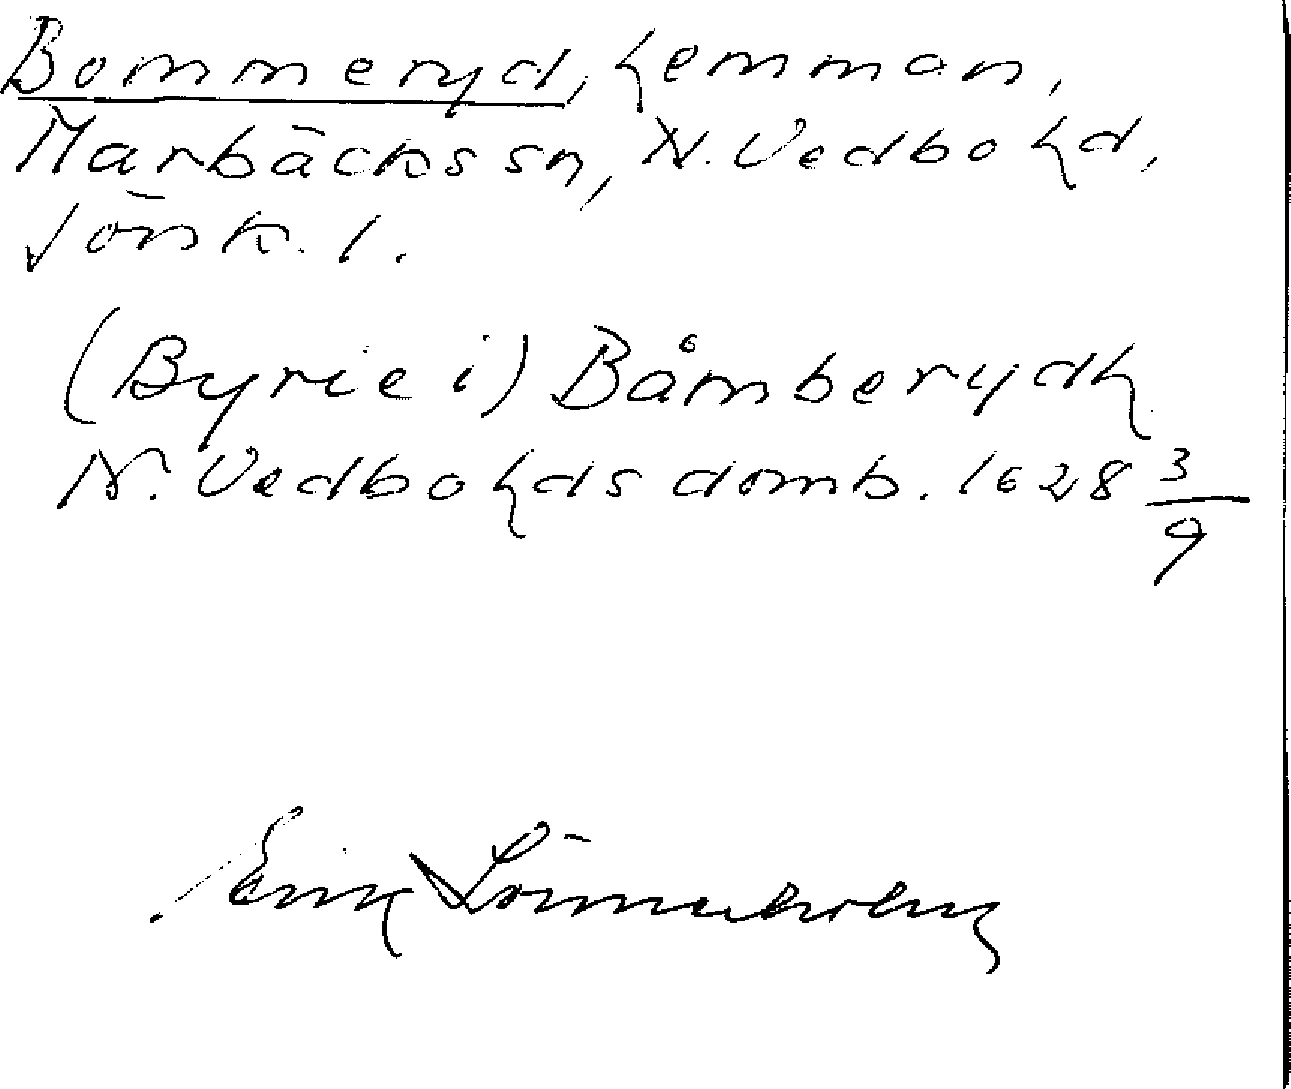 Bommeryd, hemman,
Marbäcks sn, N. Vedbo hd,
Jönk. l.
(Byrie i) Båmberydh
N. Vedbo hds domb. 1628 3/9
Erik Lönnerholm